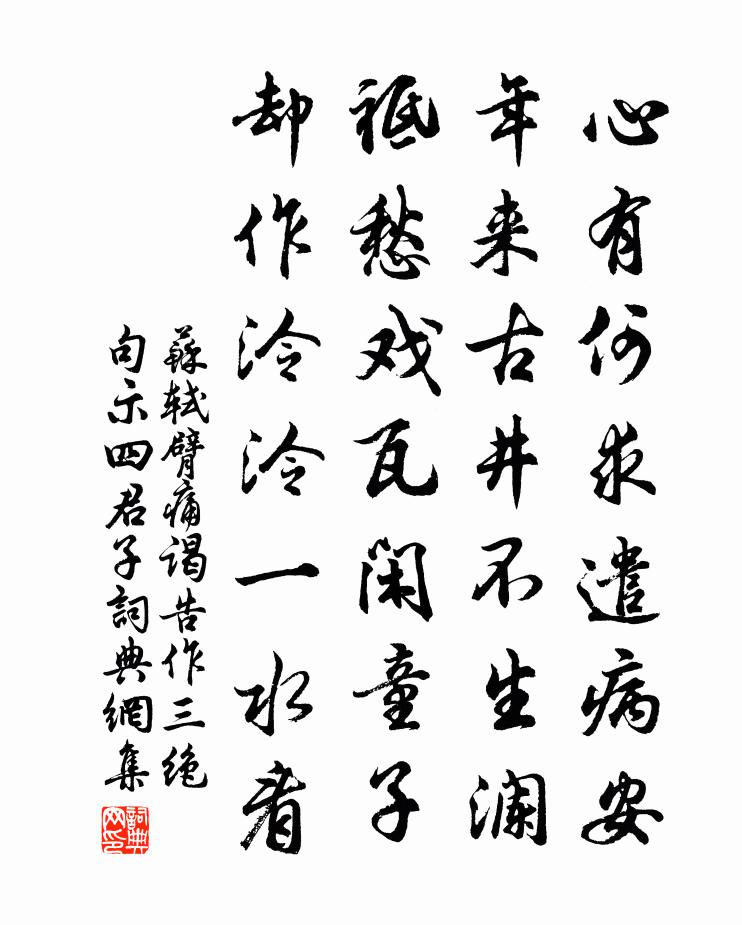 心有何求遣病安
年来古井不生澜
祇愁戏瓦闲童子
却作泠泠一水看
蘇轼臂痛谒告作三绝
句示四君子詞典網集
詞典网印